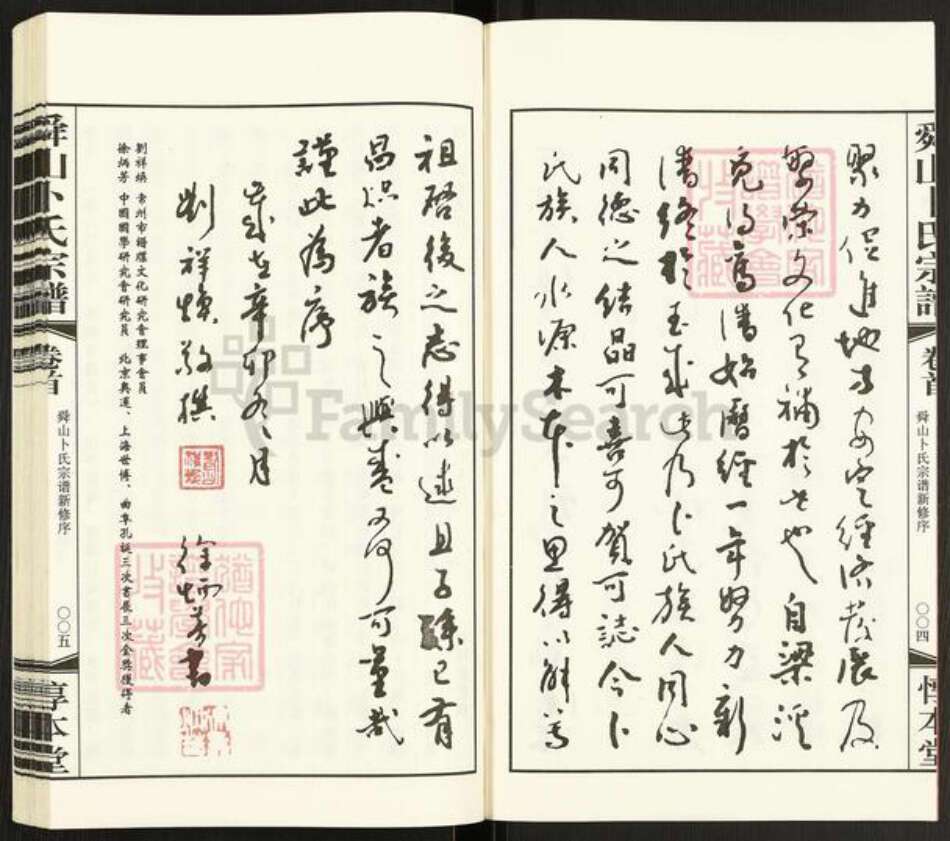 舜山卜氏宗譜
卷首
舜山卜氏宗谱新修序
〇〇四
惇本堂
聚力促進地方安定經濟發展及
繁榮文化有補於世也自梁溪
覓得舊譜始曆經一年努力新
譜終於玉成此乃卜氏族人同心
同德之結晶可喜可賀可誌今卜
氏族人水源木本之思得以解尊
祖啓後之志得以遂且子孫已有
昌熾者族之興盛又何可量哉
謹此為序
歲在辛卯九月
劉祥煥敬撰
徐炳芳書
劉祥煥 常州市譜牒文化研究會理事會員
徐炳芳 中國國學研究會研究員 北京奧運、上海世博、曲阜孔誕三次書展三次金獎獲得者
舜山卜氏宗譜
卷首
舜山卜氏宗谱新修序
〇〇五
惇本堂
FamilySearch